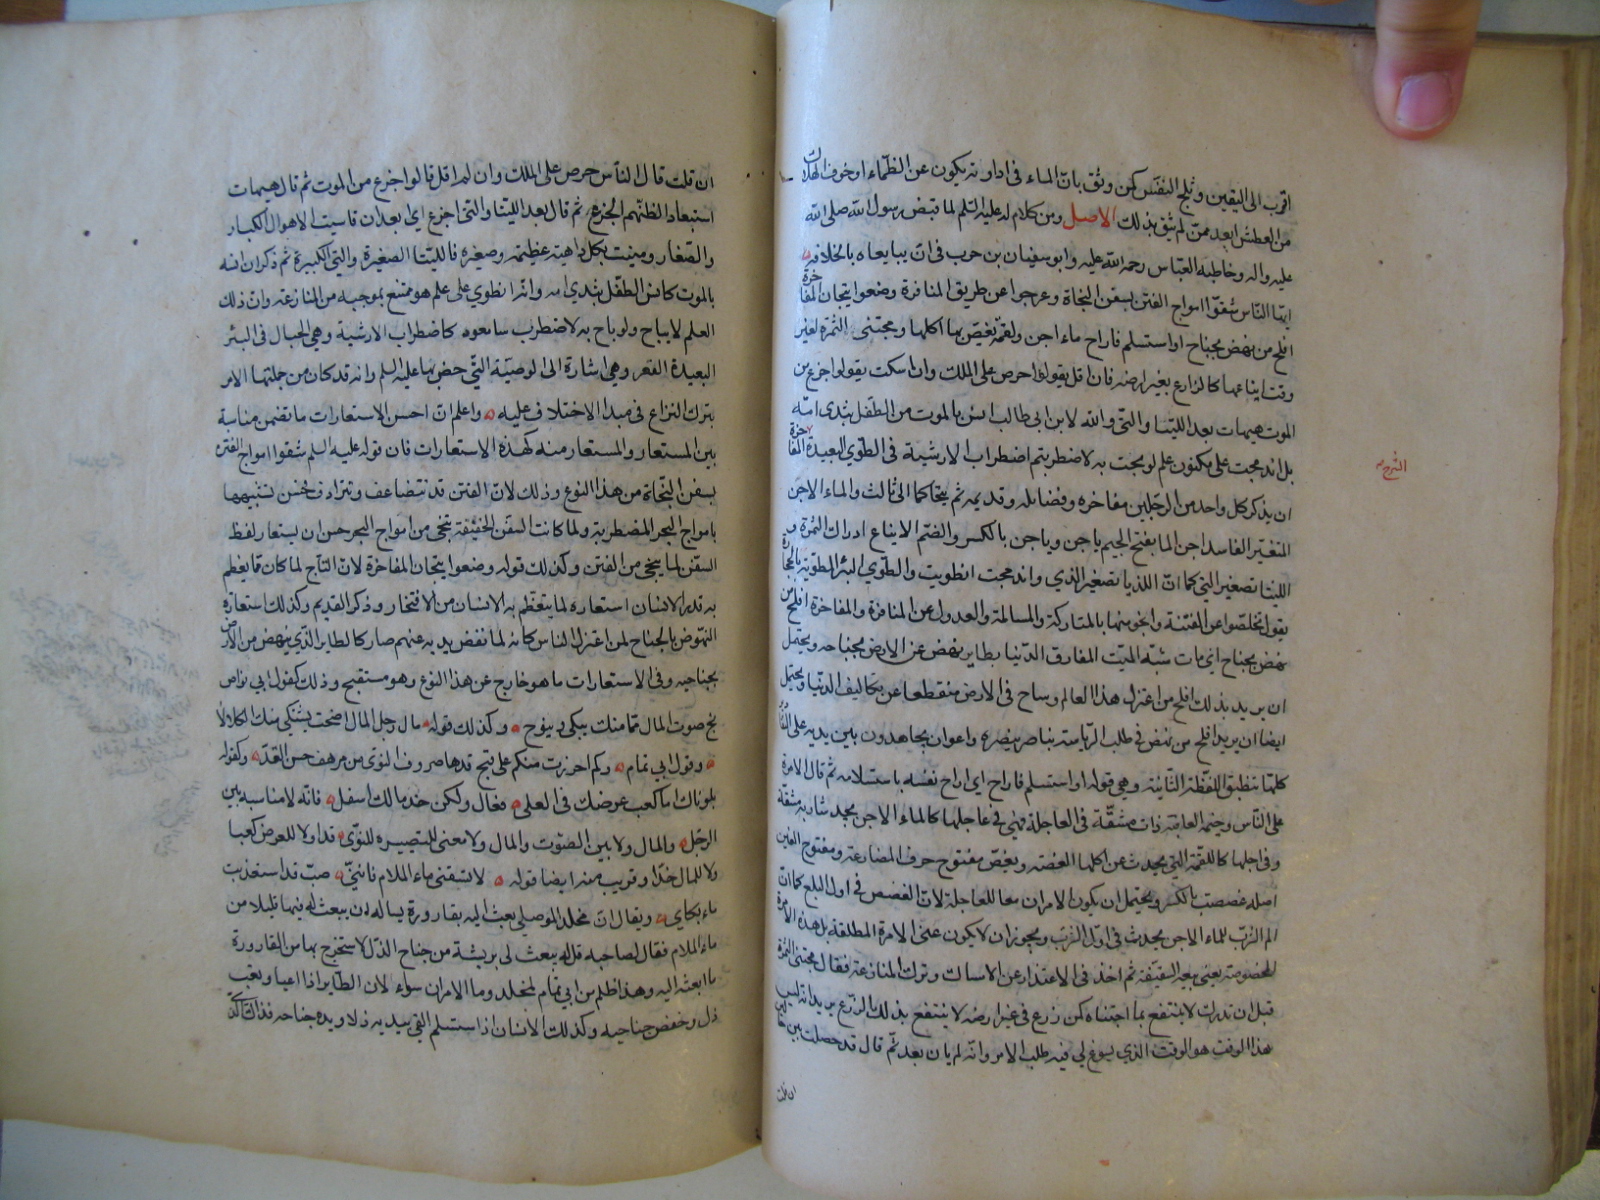 اقرب الى اليقين وثلج النفس كمن وثق بان الماء فى اداوته يكون عن الظماء او خوف الهلاك
من العطش ابعد ممن لم يثق بذلك الاصل ومن كلام له عليه السلم لما قبض رسول الله صلى الله
عليه واله وخاطبه العباس رحمه الله عليه وابو سفيان بن حرب فى ان يبايعاه بالخلافه
ايها الناس شقوا امواج الفتن بسفن النجاة وعرجوا عن طريق المنافرة وضعوا تيجان المفاخرة
افلح من نهض بجناح او استسلم فاراح ماء اجن ولقمة يغص بها اكلها ومجتنى الثمرة لغير
وقت ايناعها كالزارع بغير ارضه فان اقل يقولوا حرص على الملك وان اسكت يقولوا جزع من
الموت هيهات بعد اللتيا والتى والله لابن ابى طالب انس بالموت من الطفل بثدى امه
بل اندمجت على مكنون علم لو بحت به لاضطربتم اضطراب الارشية فى الطوي البعيدة المفاخرة
ان يذكر كل واحد من الرجلين مفاخره وفضايله وقديمه ثم يتحاكما الى ثالث والماء الاجن
المتغير الفاسد اجن الما بفتح الجيم ياجن وياجن بالكسر والضم الايناع ادراك الثمرة و
اللتيا تصغير التى كما ان اللذيا تصغير الذي واندمجت انطويت والطوي البئر المطوية بالحجارة
يقول تخلصوا عن الفتنة وانجوا منها بالمتاركة والمسالمة والعدول عن المنافرة والمفاخرة افلح من
نهض بجناح اى مات شبه الميت المفارق الدنيا بطاير نهض عن الارض بجناحه ويحتمل
ان يريد بذلك افلح من اعتزل هذا العالم وساح فى الارض منقطعا عن تكاليف الدنيا ويحتمل
ايضا ان يريد افلح من نهض فى طلب الرياسة بناصر ينصره واعوان يجاهدون بين يديه وعلى التقادير
كلها تنطبق اللفظة الثانية وهى قوله او استسلم فاراح اى اراح نفسه باستسلامه ثم قال الامرة
على الناس وخيمة العاقبة ذات مشقة فى العاجلة فهى فى عاجلها كالماء الاجن يجد شاربه مشقة
وفى اجلها كاللقمة التى يحدث عن اكلها الغصة ويغص مفتوح حرف المضارعة ومفتوح الغين
اصله غصصت بالكسر ويحتمل ان يكون الامران معا للعاجلة لان الغصص فى اول البلع كما ان
الم الشرب للماء الاجن يحدث فى اول الشرب ويجوز ان لا يكون عنى الامرة المطلقة بل هذه الامرة
المخصوصة يعنى بيعة السقيفة ثم اخذ فى الاعتذار عن الامساك وترك المنازعة فقال مجتنى الثمرة
قبل ان تدرك لا ينتفع بما اجتناه كمن زرع فى غير ارضه لا ينتفع بذلك الزرع يريد انه ليس
هذا الوقت هو الوقت الذي يسوغ لى فيه طلب الامر وانه لم يان بعد ثم قال قد حصلت بين حالين
ان قلت
الشرح
ان قلت قال الناس حرص على الملك وان لم اقل قالوا جزع من الموت ثم قال هيهات
استبعادا لظنهم الجزع ثم قال بعد اللتيا والتى اجزع اى ابعد ان قاسيت الاهوال الكبار
والصغار ومنيت بكل داهية عظيمة وصغيرة فاللتيا الصغيرة والتى الكبيرة ثم ذكر ان انسه
بالموت كانس الطفل بثدى امه وانه انطوي على علم هو ممتنع لموجبه من المنازعة وان ذلك
العلم لا يباح ولو باح به لاضطرب سامعوه كاضطراب الارشية وهى الحبال فى البئر
البعيدة القعر وهى اشارة الى الوصية التى خص بها عليه السلم وانه قد كان من جملتها الامر
بترك النزاع فى مبدا الاختلاف عليه واعلم ان احسن الاستعارات ما تضمن مناسبة
بين المستعار والمستعار منه كهذه الاستعارات فان قوله عليه السلم شقوا امواج الفتن
بسفن النجاة من هذا النوع وذلك لان الفتن قد تتضاعف وتترادف فحسن تشبيهها
بامواج البحر المضطربة ولما كانت السفن الحقيقة تنجى من امواج البحر حسن ان يستعار لفظ
السفن لما ينجى من الفتن وكذلك قوله وضعوا تيجان المفاخرة لان التاج لما كان مما يعظم
به قدر الانسان استعاره لما يتعظم به الانسان من الافتخار وذكر القديم وكذلك استعارة
النهوض بالجناح لمن اعتزل الناس كانه لما نفض يديه عنهم صار كالطاير الذي ينهض من الارض
بجناحيه وفى الاستعارات ما هو خارج عن هذا النوع وهو مستقبح وذلك كقول ابى نواس
بح صوت المال مما منك يبكى وينوح وكذلك قوله مال رجل المال اضحت تشتكى منك الكلالا
وقول ابى تمام وكم احرزت منكم على قبح قدها صروف النوى من مرهف حسن القد وكقوله
بلوناك اما كعب عرضك فى العلى فعال ولكن خد مالك اسفل فانه لا مناسبة بين
الرجل والمال ولا بين الصوت والمال ولا معنى لتصييره للنوى قدا ولا للعرض كعبا
ولا للمال خدا وقريب منه ايضا قوله لا تسقنى ماء الملام فاننى صب قد استعذبت
ماء بكاي ويقال ان مخلد الموصلى بعث اليه بقارورة يساله ان يبعث له فيها قليلا من
ماء الملام فقال لصاحبه قل له يبعث لى بريشة من جناح الذل لاستخرج بها من القارورة
ما ابعثه اليه وهذا ظلم من ابى تمام لمخلد وما الامران سواء لان الطاير اذا اعيا وتعب
ذل وخفض جناحيه وكذلك الانسان اذا استسلم القى بيديه ذلا ويده جناحه فذاك